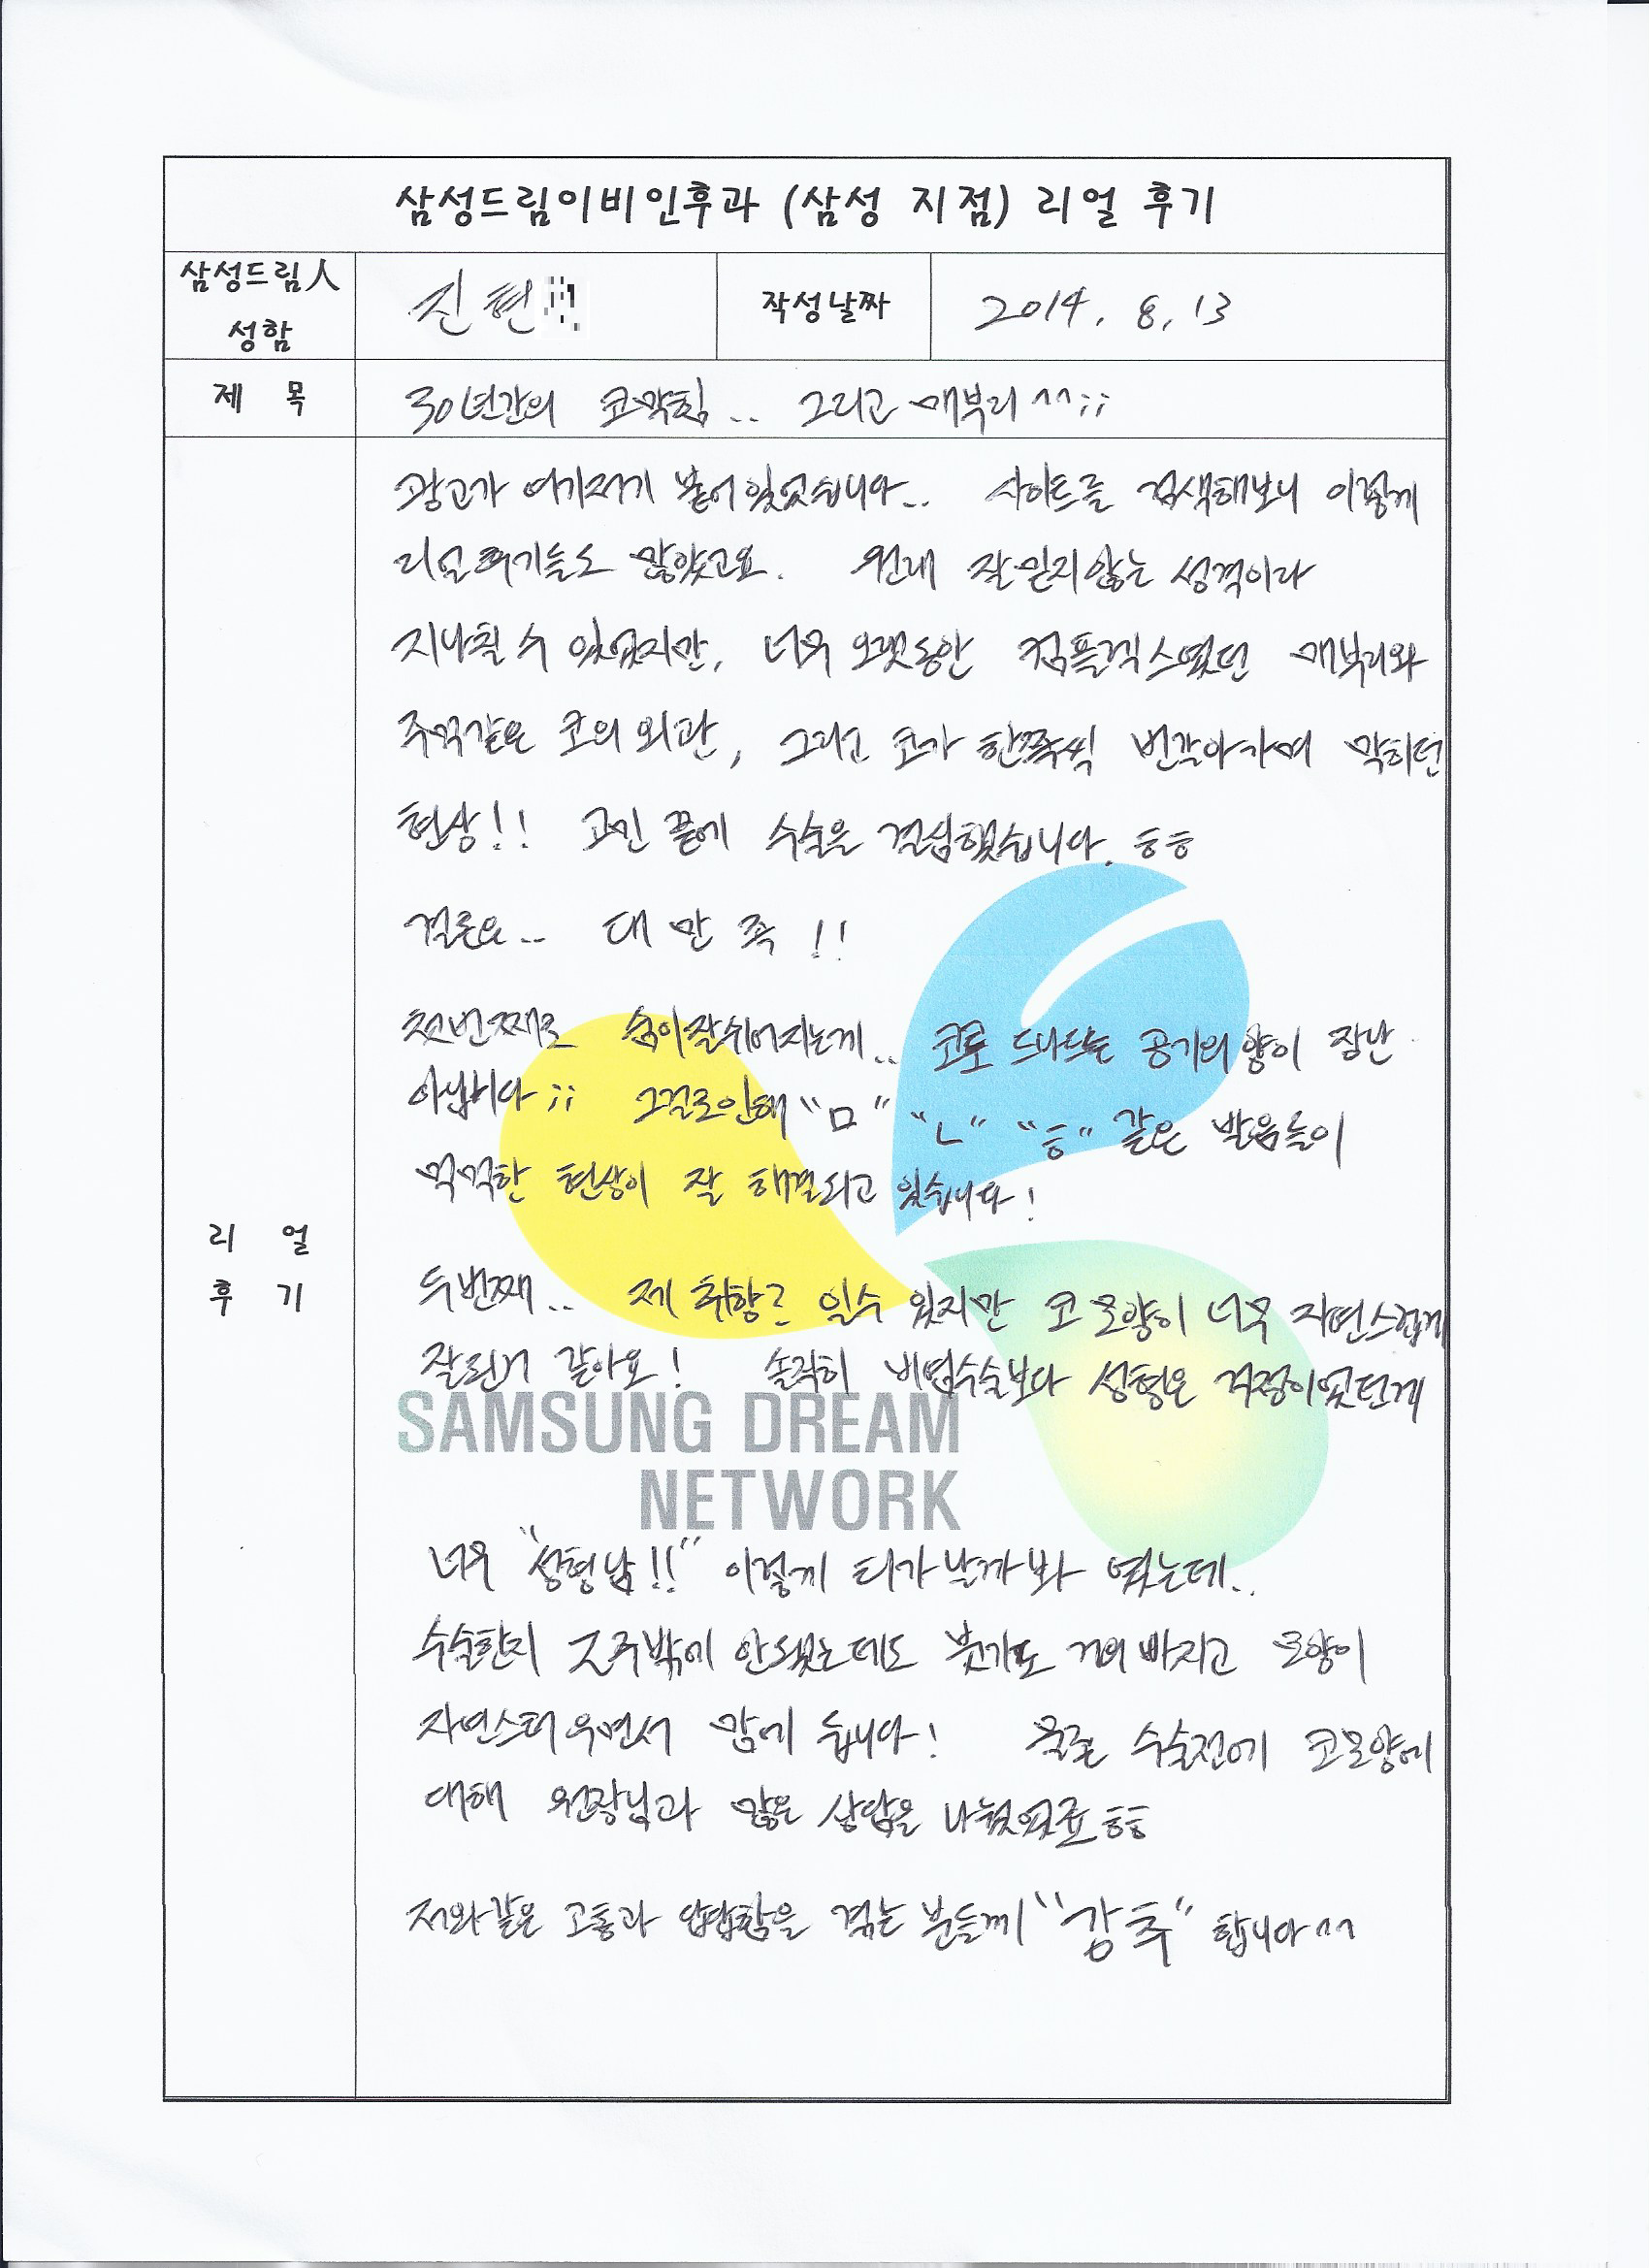 삼성드림이비인후과 (삼성 지점) 리얼 후기
삼성드림人
성함
진현
작성날짜
2014. 8. 13
제 목
30년간의 코막힘.. 그리고 매부리^^;;
광고가 여기저기 붙어있었습니다.. 사이트를 검색해보니 이렇게
리얼후기들도 많았고요. 원래 잘 믿지않는 성격이라
지나칠 수 있었지만, 너무 오랫동안 컴플렉스였던 매부리와
주먹같은 코의 외관, 그리고 코가 한쪽씩 번갈아가며 막히던
현상!! 고민 끝에 수술을 결심했습니다. ㅎㅎ
결론요.. 대 만 족 !!
첫번째로 숨이잘쉬어지는게.. 코로 드나드는 공기의 양이 장난
아닙니다;; 그걸로인해 "ㅁ" "ㄴ" "ㅎ" 같은 발음들이
먹먹한 현상이 잘 해결되고 있습니다!
리 얼
후 기
두번째.. 제 취향? 일수 있지만 코 모양이 너무 자연스럽게
잘된거 같아요! 솔직히 비염수술보다 성형은 걱정이었던게
SAMSUNG DREAM
NETWORK
너무 "성형남!!" 이렇게 티가날까봐 였는데..
수술한지 2주밖에 안됐는데도 붓기도 거의 빠지고 모양이
자연스러우면서 맘에 듭니다! 물론 수술전에 코모양에
대해 원장님과 많은 상담을 나눴었죠ㅎㅎ
저와같은 고통과 답답함을 겪는 분들께 "강추" 합니다^^